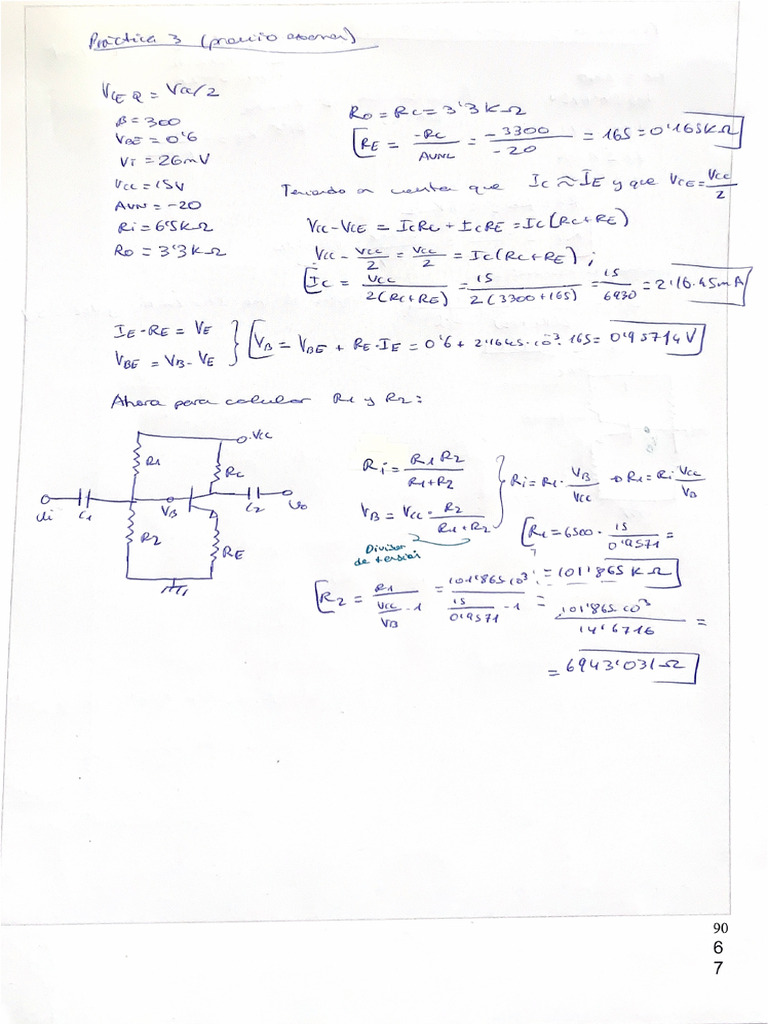 Práctica 3 (previo
VCEQ = VCC/2
β = 300
VBE = 0'6
VT = 26mV
VCC = 15V
AVNL = -20
Ri = 6'5kΩ
Ro = 3'3kΩ
Ro = RC = 3'3kΩ
RE = -RC/AVNL = -3300/-20 = 165 = 0'165kΩ
Teniendo en cuenta que IC ≈ IE y que VCE = VCC/2
VCC - VCE = ICRC + ICRE = IC(RC+RE)
VCC - VCC/2 = VCC/2 = IC(RC+RE);
IC = VCC/2(RC+RE) = 15/2(3300+165) = 15/6930 = 2'1645mA
IE·RE = VE
VBE = VB - VE
VB = VBE + RE·IE = 0'6 + 2'1645·10⁻³·165 = 0'95714V
Ahora para calcular R1 y R2:
VCC
R1
RC
Ui
C1
VB
C2
Uo
R2
RE
Ri = R1 R2/R1+R2
VB = VCC · R2/R1+R2
Divisor
de tensión
Ri = R1 · VB/VCC → R1 = Ri VCC/VB
R1 = 6500 · 15/0'9571 =
= 101'865 kΩ
R2 = R1/VCC/VB - 1 = 101'865·10³/15/0'9571 - 1 = 101'865·10³/14'6716 =
= 6943'031Ω
90
6
7